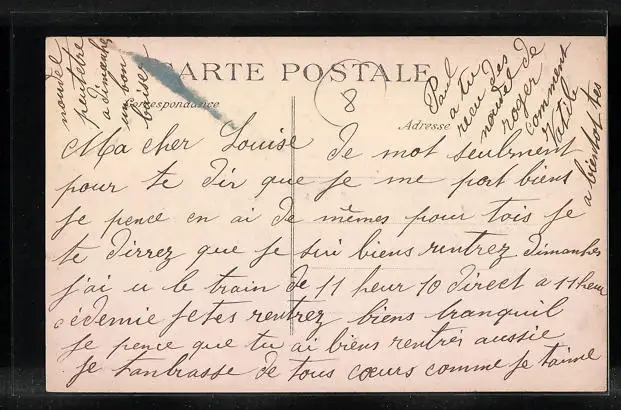 CARTE POSTALE
Correspondance
Adresse
8
Ma cher Louise de mot seulment
pour te dir que je me port biens
je pence en ai de mêmes pour tois je
te dirrez que je sui biens rentrez dimanhes
j'ai u le train de 11 heur 10 direct a 11 heur
édemie jetes rentrez biens tranquil
je pence que tu ai biens rentrés aussie
je tanbrasse de tous cœurs comme je taime
noudel
peutetre
a dimanhes
un bon
baiser
Paul
a tu
recu des
nouvel de
roger
comment
vatil
a bientot tes